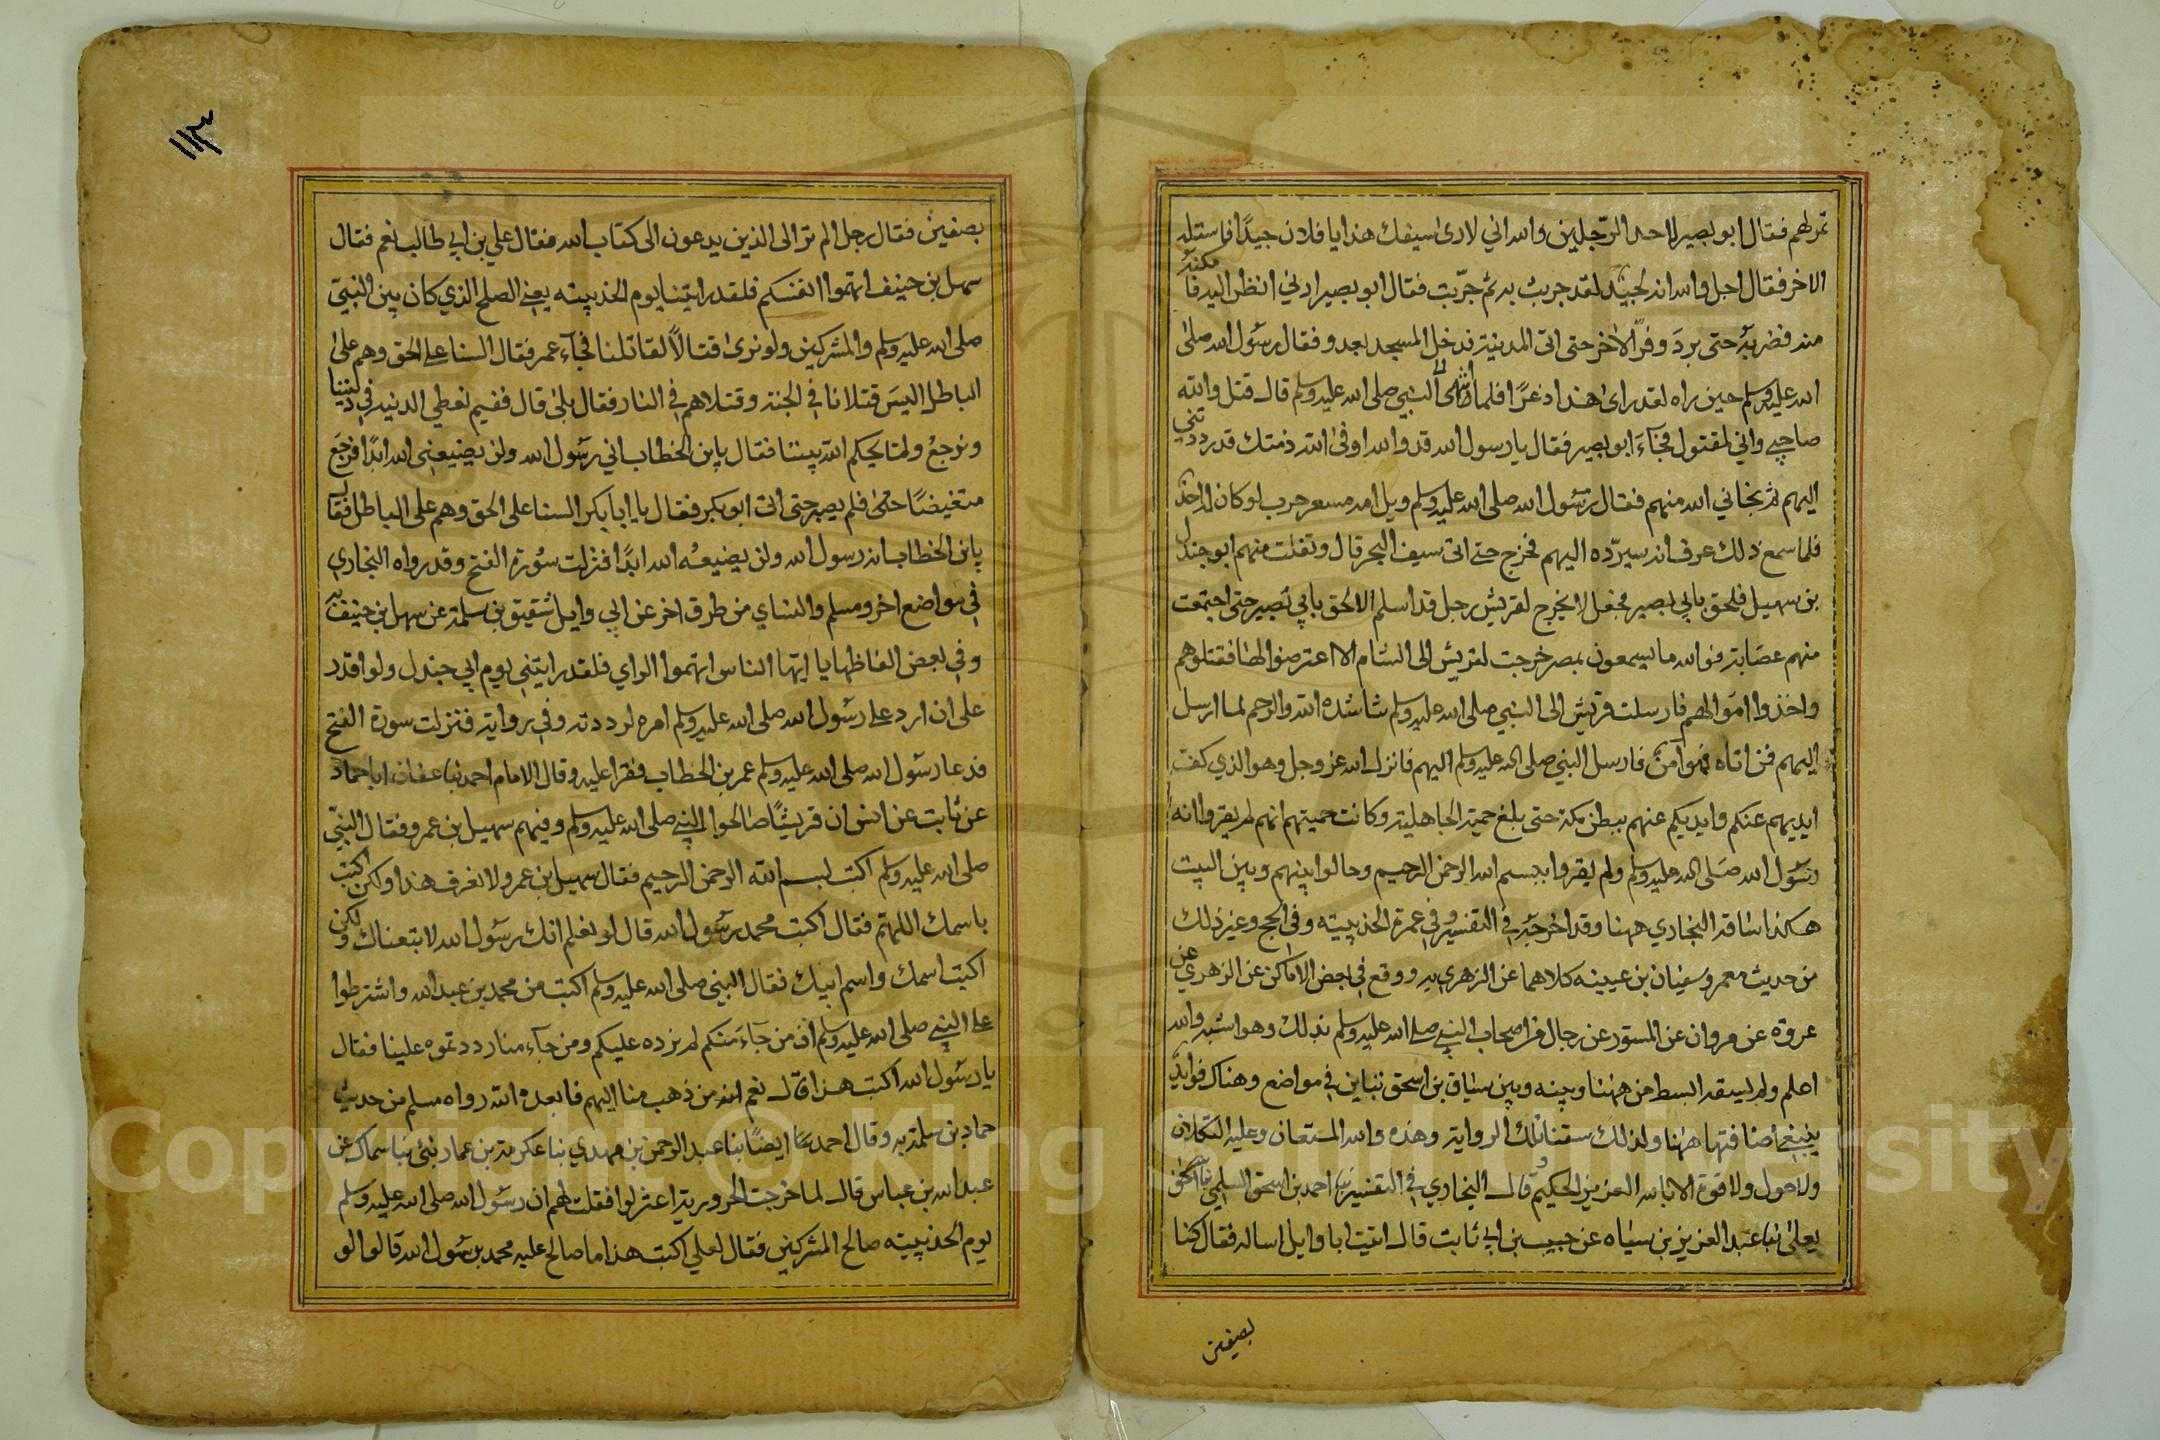 تمر لهم فقال ابو بصير لاحد الرجلين والله اني لارى سيفك هذا يا فلان جيدا فاستله
الاخر فقال اجل والله انه لجيد لقد جربت به ثم جربت فقال ابو بصير ارني انظر اليه فا مكنه
منه فضربه حتى برد وفرّ الاخر حتى اتى المدينة فدخل المسجد يعدو فقال رسول الله صلى
الله عليه وسلم حين راه لقد راى هذا ذعرًا فلما انتهى الى النبي صلى الله عليه وسلم قال قتل والله
صاحبي واني لمقتول فجآء ابو بصير فقال يا رسول الله قد والله اوفى الله ذمتك قد رددتني
اليهم ثم نجاني الله منهم فقال رسول الله صلى الله عليه وسلم ويل امه مسعر حرب لو كان له احد
فلما سمع ذلك عرف انه سيرده اليهم فخرج حتى اتى سيف البحر قال وتفلت منهم ابو جندل
بن سهيل فلحق بابي بصير فجعل لا يخرج لقريش رجل قد اسلم الا لحق بابي بصير حتى اجتمعت
منهم عصابة فوالله ما يسمعون بمصر خرجت لقريش الى الشام الا اعترضوا لها فقتلوهم
واخذوا اموالهم فارسلت قريش الى النبي صلى الله عليه وسلم تناشده الله والرحم لما ارسل
اليهم فمن اتاه فهو آمن فارسل النبي صلى الله عليه وسلم اليهم فانزل الله عز وجل وهو الذي كف
ايديهم عنكم وايديكم عنهم ببطن مكة حتى بلغ حمية الجاهلية وكانت حميتهم انهم لم يقروا انه
رسول الله صلى الله عليه وسلم ولم يقروا ببسم الله الرحمن الرحيم وحالوا بينهم وبين البيت
هكذا ساقه البخاري ههنا وقد اخرجه في التفسير وفي عمرة الحديبية وفي الحج وغير ذلك
من حديث معمر وسفيان بن عيينه كلاهما عن الزهري به ووقع في بعض الاماكن عن الزهري عن
عروة عن مروان عن المسور عن رجال من اصحاب النبي صلى الله عليه وسلم بذلك وهو اشبه والله
اعلم ولم يسقه ابسط من ههنا وبينه وبين سياق بن اسحق تباين في مواضع وهناك فوايد
ينبغي اضافتها ههنا ولذلك سقنا تلك الرواية وهذه والله المستعان وعليه التكلان
ولا حول ولا قوة الا بالله العزيز الحكيم وقال البخاري في التفسير ثنا احمد بن اسحق السلمي ثنا
يعلى ثنا عبد العزيز بن سياه عن حبيب بن ابي ثابت قال اتيت ابا وايل اساله فقال كنا
بصفين
١١٣
بصفين فقال رجل الم تر الى الذين يدعون الى كتاب الله فقال علي بن ابي طالب نعم فقال
سهل بن حنيف اتهموا انفسكم فلقد رايتنا يوم الحديبيه يعني الصلح الذي كان بين النبي
صلى الله عليه وسلم والمشركين ولو نرى قتالاً لقاتلنا فجآء عمر فقال السنا على الحق وهم على
الباطل اليس قتلانا في الجنة وقتلاهم في النار فقال بلى قال ففيم نعطي الدنية في ديننا
ونرجع ولما يحكم الله بيننا فقال يا بن الخطاب اني رسول الله ولن يضيعني الله ابدًا فرجع
متغيضًا فلم يصبر حتى اتى ابو بكر فقال يا ابا بكر السنا على الحق وهم على الباطل فقال
يا بن الخطاب انه رسول الله ولن يضيعه الله ابدًا فنزلت سورة الفتح وقد رواه البخاري
في مواضع اخر ومسلم والنساي من طرق اخر عن ابي وايل شقيق بن سلمة عن سهل بن حنيف به
وفي بعض الفاظها يا ايها الناس اتهموا الراي فلقد رايتني يوم ابي جندل ولو اقدر
على ان ارد على رسول الله صلى الله عليه وسلم امره لرددته وفي رواية فنزلت سورة الفتح
فدعا رسول الله صلى الله عليه وسلم عمر بن الخطاب فقرا عليه وقال الامام احمد ثنا عفان ثنا حماد
عن ثابت عن انس ان قريشًا صالحوا النبي صلى الله عليه وسلم وفيهم سهيل بن عمرو فقال النبي
صلى الله عليه وسلم اكتب لبسم الله الرحمن الرحيم فقال سهيل بن عمرو لا نعرف هذا ولكن اكتب
باسمك اللهم فقال اكتب محمد رسول الله قال لو نعلم انك رسول الله لا بتعناك ولكن
اكتب اسمك واسم ابيك فقال النبي صلى الله عليه وسلم اكتب من محمد بن عبد الله واشترطوا
على النبي صلى الله عليه وسلم ان من جآء منكم لم نرده عليكم ومن جآء منا رددتموه علينا فقال
يا رسول الله اكتب هذا قال نعم انه من ذهب منا اليهم فابعده الله رواه مسلم من حديث
حماد بن سلمة به وقال احمد ايضًا ثنا عبد الرحمن بن مهدي ثنا عكرمة بن عمار ثنا سماك عن
عبد الله بن عباس قال لما خرجت الحرورية اعتزلوا فقلت لهم ان رسول الله صلى الله عليه وسلم
يوم الحديبيه صالح المشركين فقال لعلي اكتب هذا ما صالح عليه محمد رسول الله قالوا لو
Copyright © King Saud University